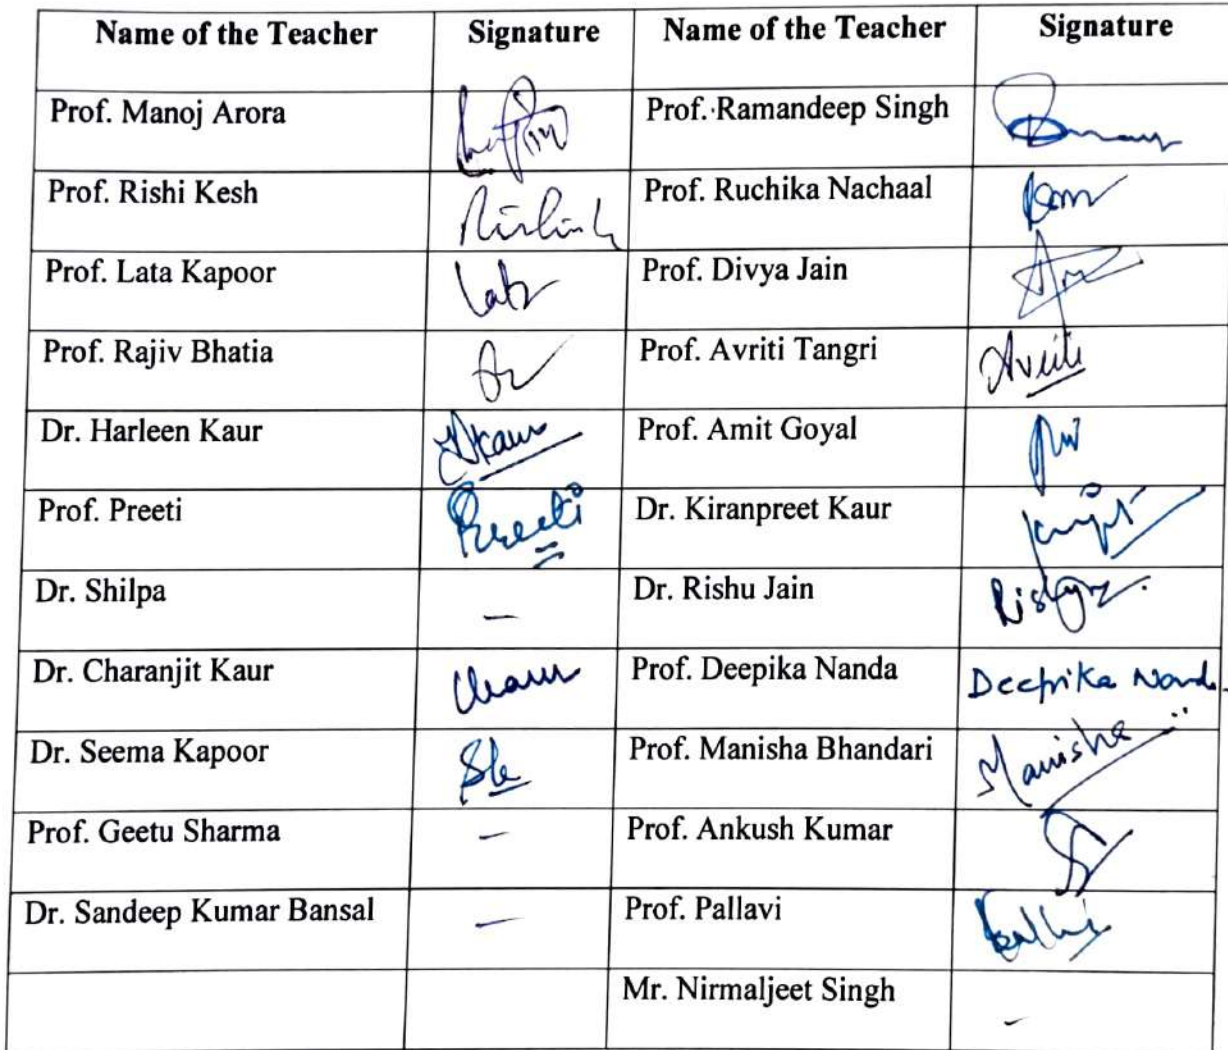 Name of the Teacher Signature Name of the Teacher Signature
Prof. Manoj Arora Prof. Ramandeep Singh
Prof. Rishi Kesh Prof. Ruchika Nachaal
Prof. Lata Kapoor Prof. Divya Jain
Prof. Rajiv Bhatia Prof. Avriti Tangri Avriti
Dr. Harleen Kaur Hkaur Prof. Amit Goyal
Prof. Preeti Preeti Dr. Kiranpreet Kaur
Dr. Shilpa – Dr. Rishu Jain
Dr. Charanjit Kaur Prof. Deepika Nanda Deepika Nanda
Dr. Seema Kapoor Prof. Manisha Bhandari Manisha
Prof. Geetu Sharma – Prof. Ankush Kumar
Dr. Sandeep Kumar Bansal – Prof. Pallavi
Mr. Nirmaljeet Singh -